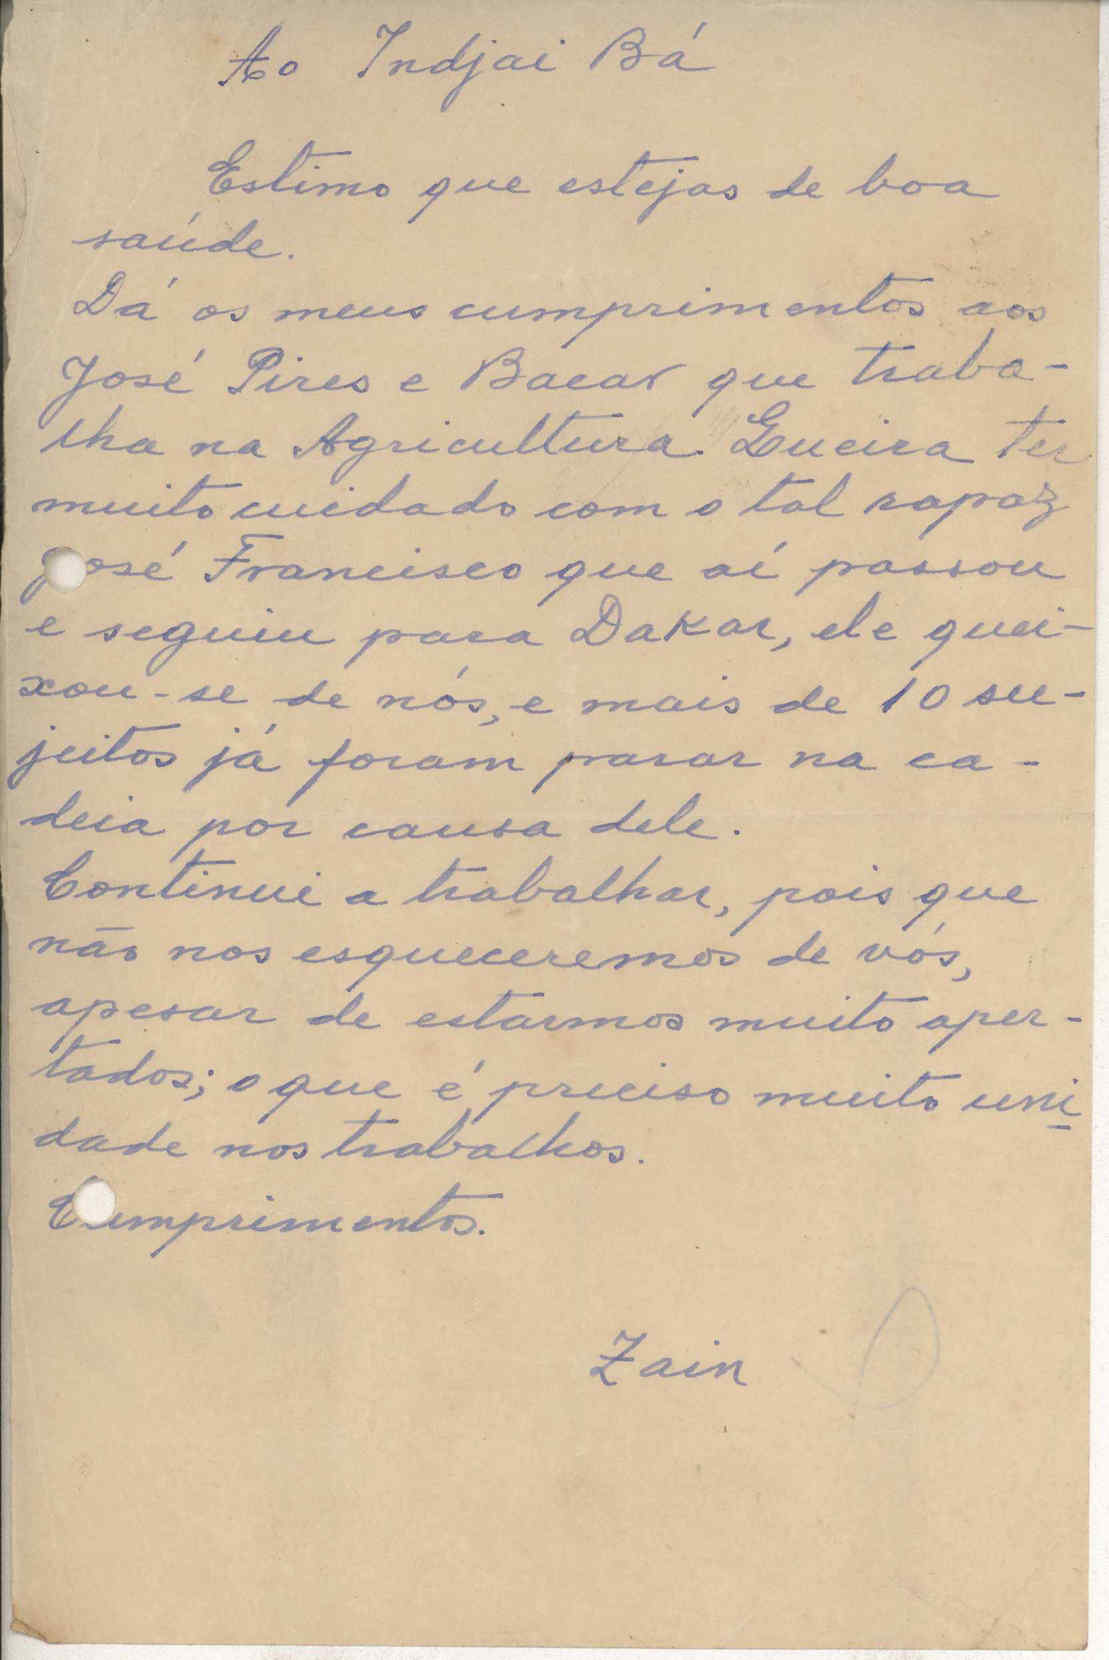 Ao Indjai Bá
Estimo que estejas de boa
saúde.
Dá os meus cumprimentos aos
José Pires e Bacar que traba-
lha na Agricultura. Queira ter
muito cuidado com o tal rapaz
José Francisco que aí passou
e seguiu para Dakar, ele quei-
xou-se de nós, e mais de 10 su-
jeitos já foram parar na ca-
deia por causa dele.
Continui a trabalhar, pois que
não nos esqueceremos de vós,
apesar de estarmos muito aper-
tados; o que é preciso muito uni
dade nos trabalhos.
Cumprimentos.
Zain